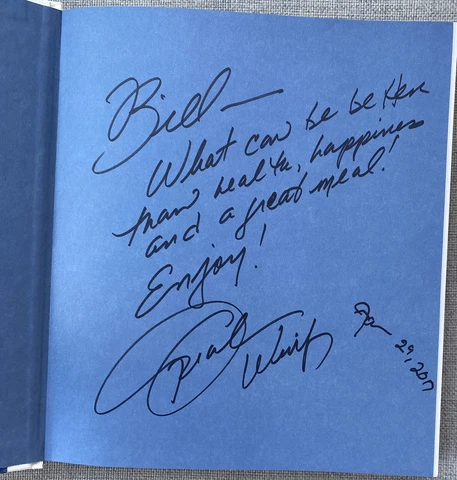 Bill —
What can be better
than health, happiness
and a great meal!
Enjoy!
Oprah Winfrey
Jan 29, 2017